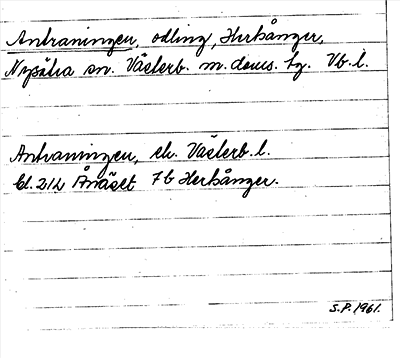 Antraningen, odling, Herrånger,
Nysätra sn. Västerb. m. doms. tg. Vb. l.
Antraningen, ek. Västerb. l.
bl. 212 Ånäset 7 b Herrånger.
S.P. 1961.